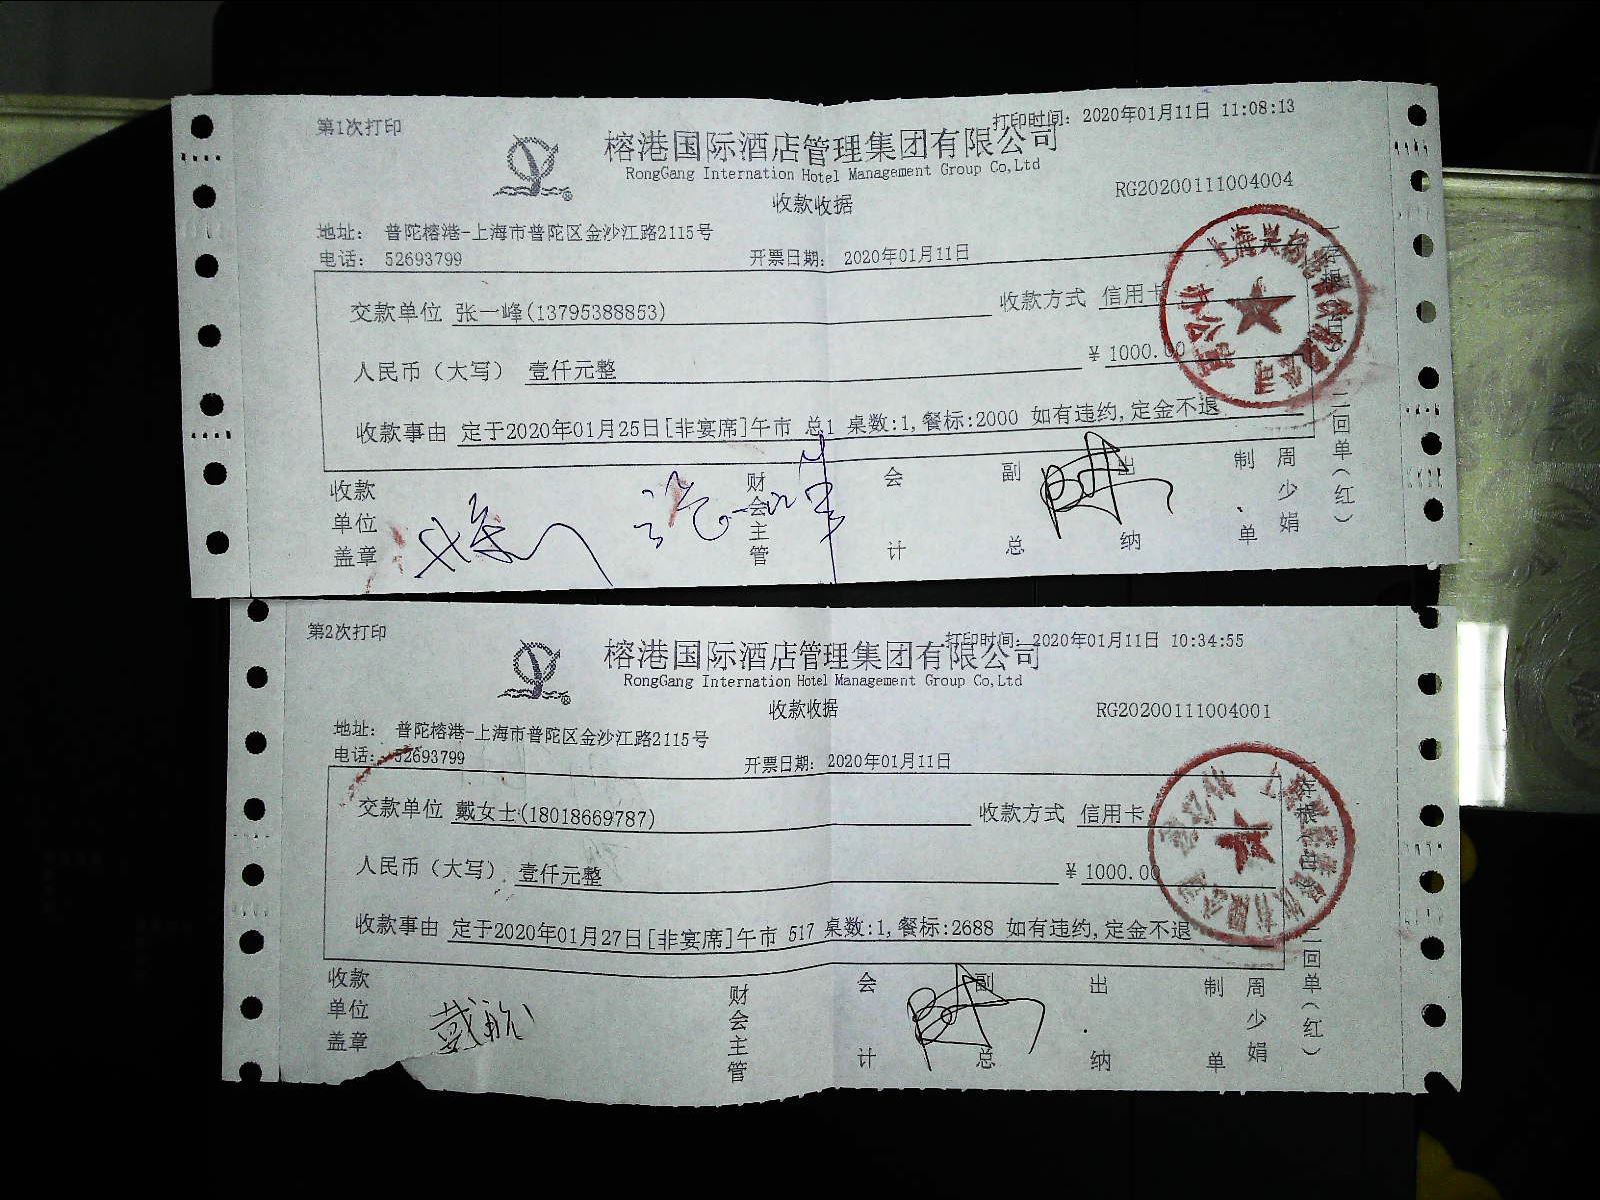 第1次打印
打印时间: 2020年01月11日 11:08:13
榕港国际酒店管理集团有限公司
RongGang Internation Hotel Management Group Co,Ltd
收款收据
RG20200111004004
地址: 普陀榕港-上海市普陀区金沙江路2115号
电话: 52693799
开票日期: 2020年01月11日
交款单位 张一峰(13795388853)
收款方式 信用卡
人民币（大写） 壹仟元整
¥ 1000.00
收款事由 定于2020年01月25日[非宴席]午市 总1 桌数:1,餐标:2000 如有违约,定金不退
收款单位盖章
财会主管
会计
副总
出纳
制单
周少娟
二回单(红)
办公室
第2次打印
打印时间: 2020年01月11日 10:34:55
榕港国际酒店管理集团有限公司
RongGang Internation Hotel Management Group Co,Ltd
收款收据
RG20200111004001
地址: 普陀榕港-上海市普陀区金沙江路2115号
电话: 52693799
开票日期: 2020年01月11日
交款单位 戴女士(18018669787)
收款方式 信用卡
人民币（大写） 壹仟元整
¥ 1000.00
收款事由 定于2020年01月27日[非宴席]午市 517 桌数:1,餐标:2688 如有违约,定金不退
收款单位盖章
财会主管
会计
副总
出纳
制单
周少娟
二回单(红)